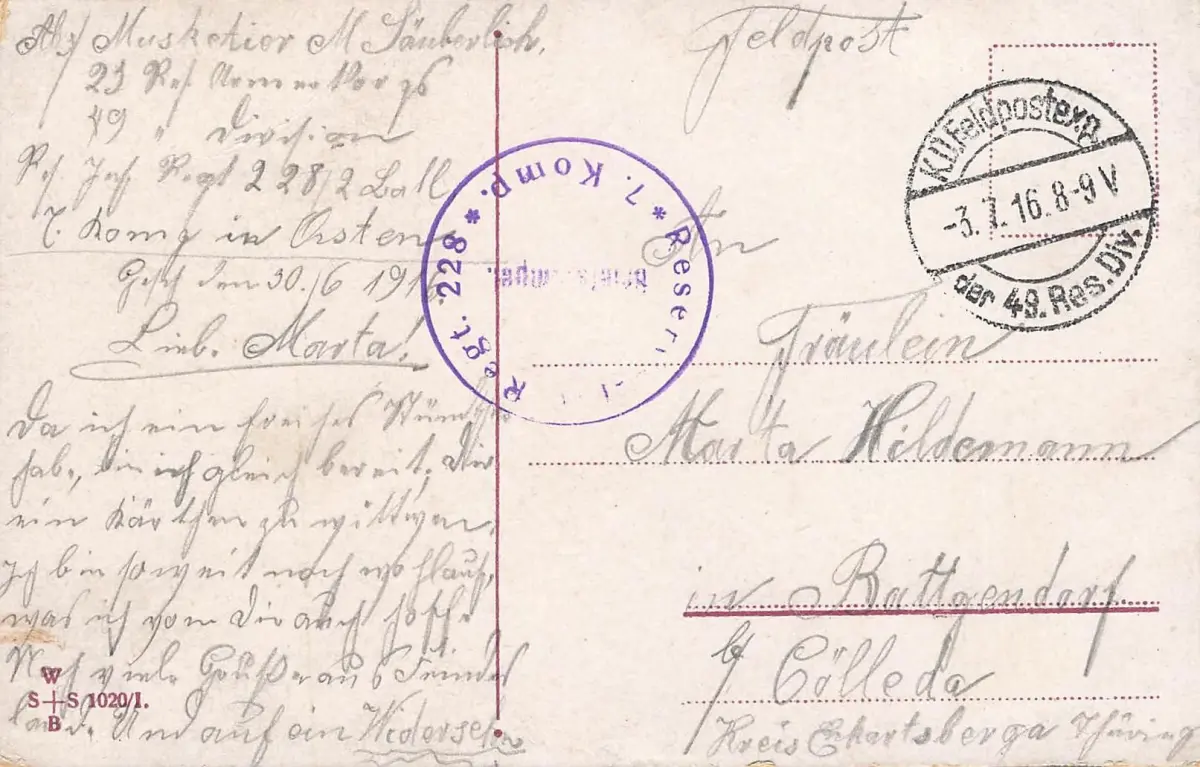 Abs Musketier M Säuberlich,
23 Res Armee Korps
49 " Division
Res. Inf Regt 228/2 Batl
7. Komp in Osten
Gesch den 30./6 1916.
Lieb. Marta!
Da ich ein freies Stündch
habe, bin ich gleich bereit, Dir
ein Kärtchen zu wittmen.
Ich bin soweit noch wohlauf,
was ich von Dir auch hoffe
Noch viele Grüße aus Feindes
land. Und auf ein Wiedersehn
W
S+S 1020/I.
B
Feldpost
K.D. Feldpostexp.
-3.7.16.8-9V
der 49. Res. Div.
* Reserv
Regt. 228 * 7. Komp.
An
Fräulein
Marta Hildemann
in Battgendorf
b/ Cölleda
Kreis Eckartsberga Thüring